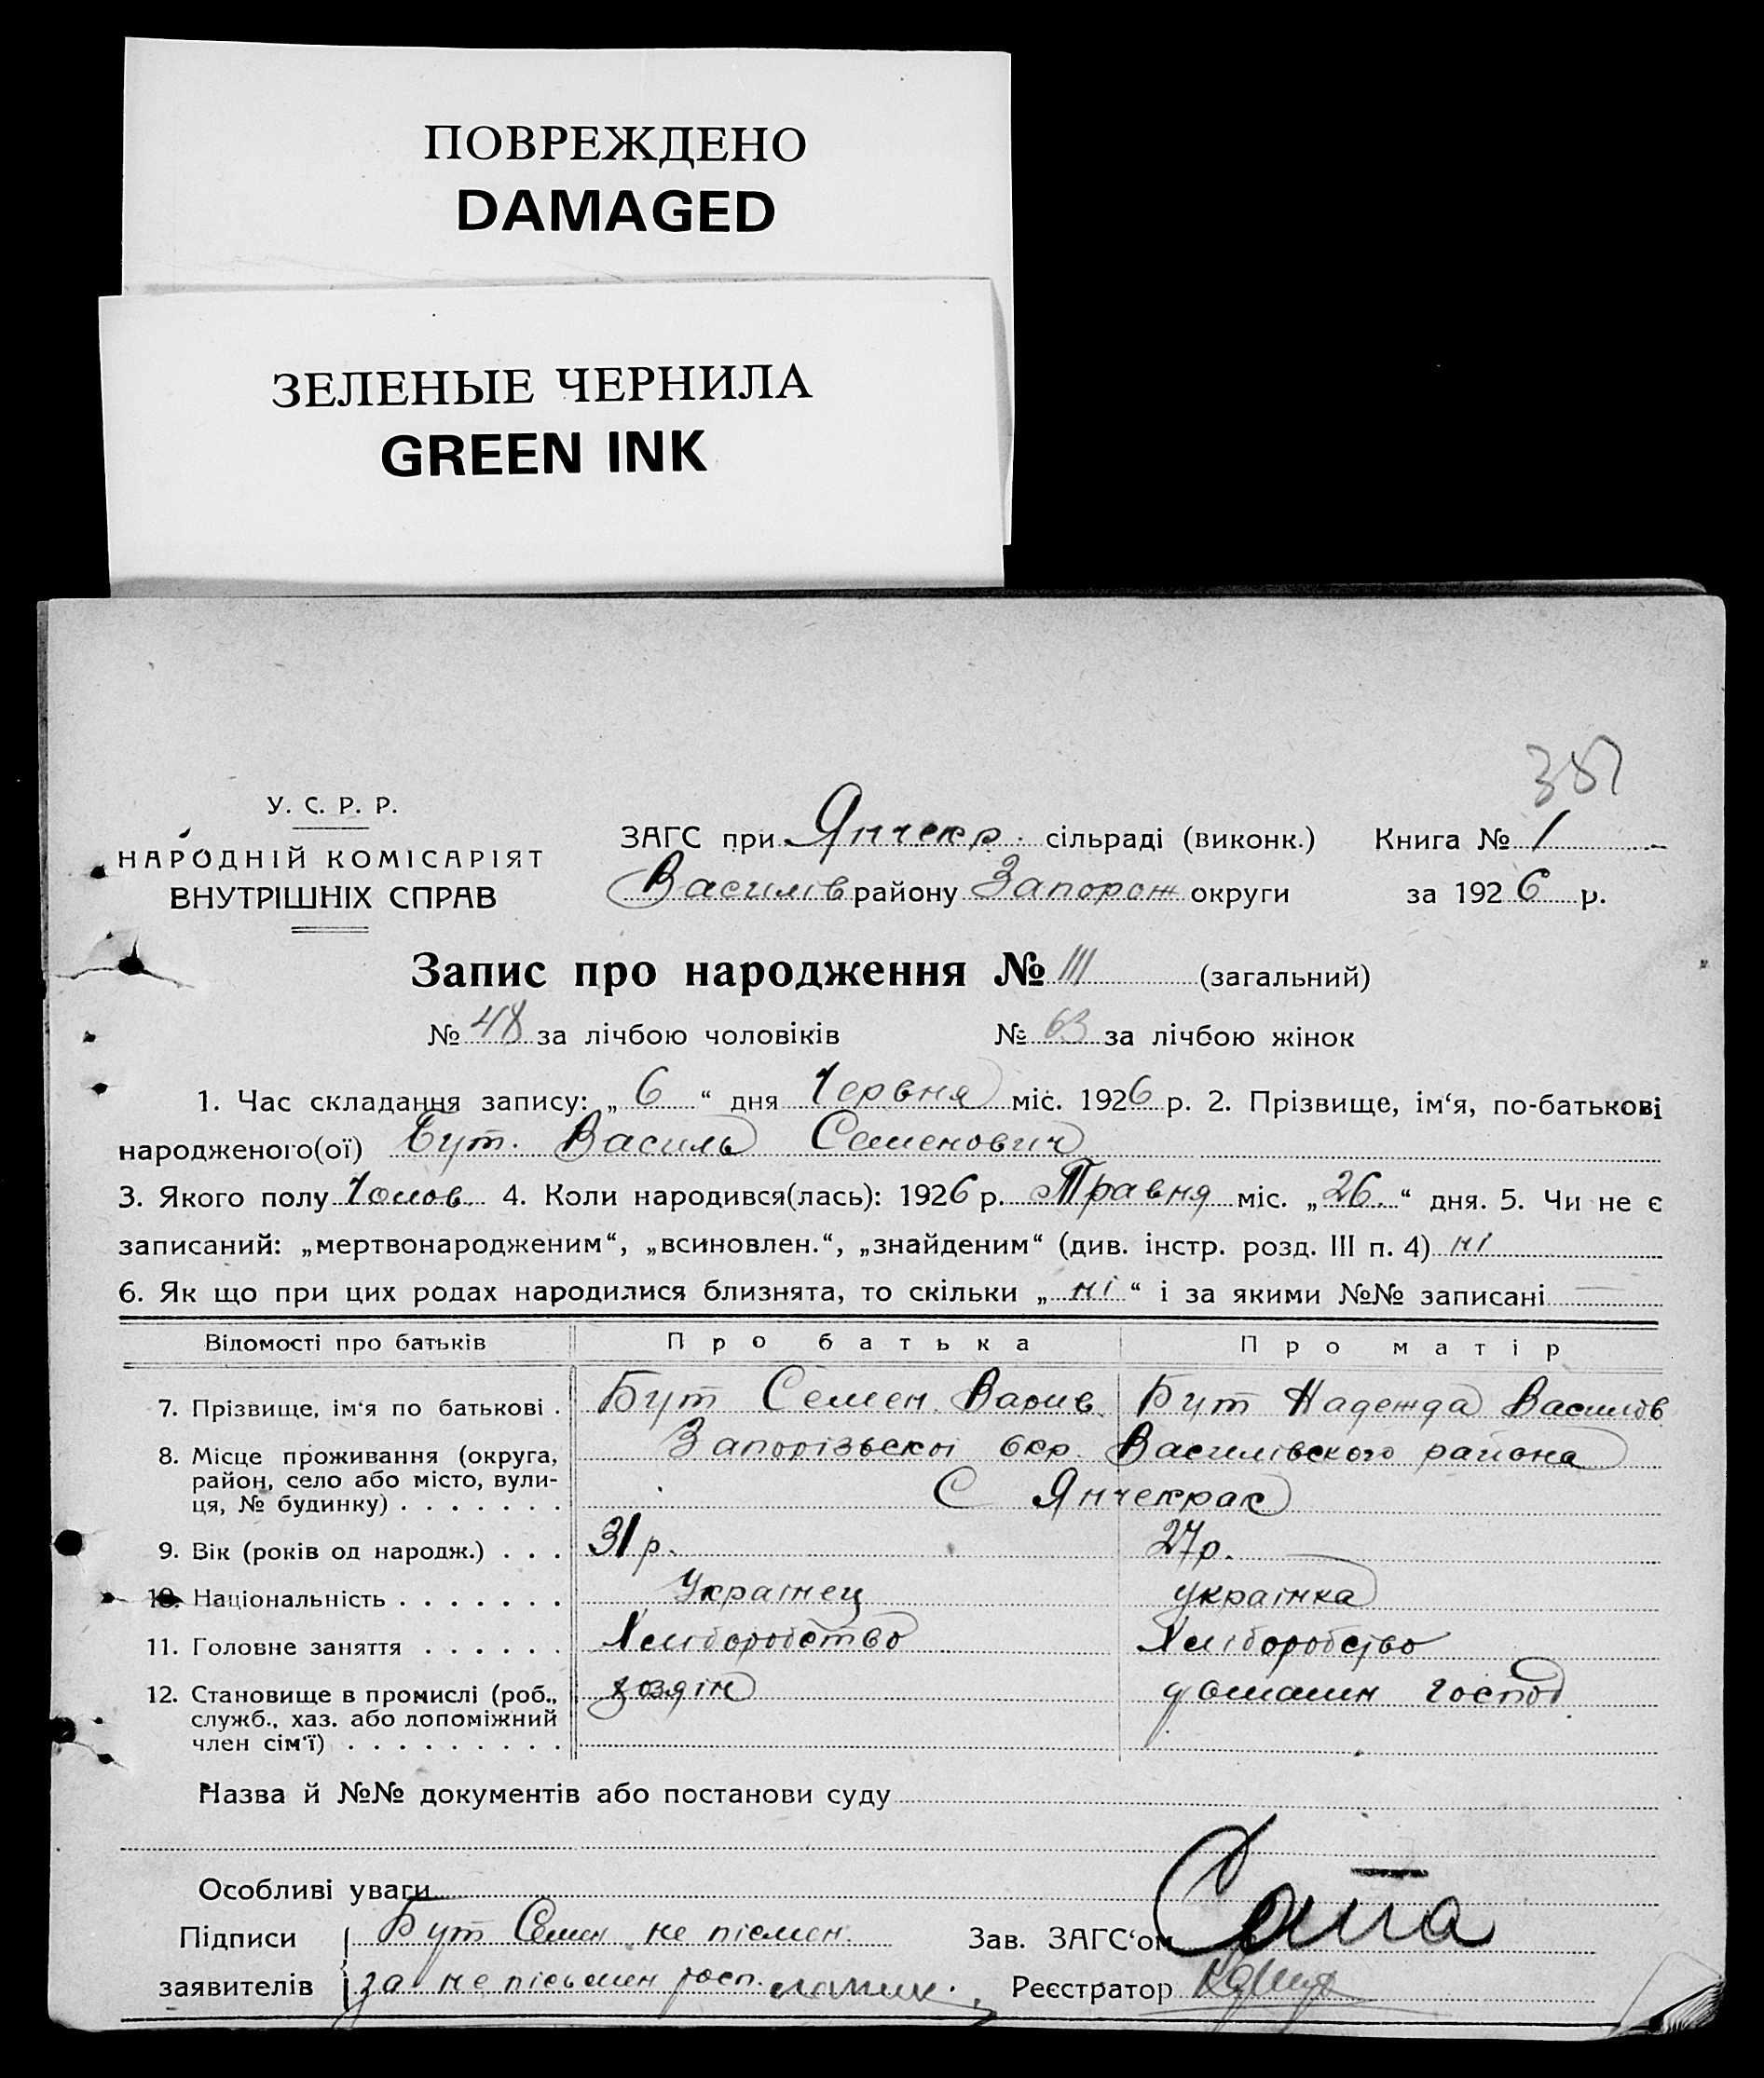 ПОВРЕЖДЕНО
DAMAGED
ЗЕЛЕНЫЕ ЧЕРНИЛА
GREEN INK
381
У. С. Р. Р.
НАРОДНІЙ КОМІСАРІЯТ
ВНУТРІШНІХ СПРАВ
ЗАГС при Янчекр. сільраді (виконк.) Книга № 1
Василів району Запорож округи за 1926 р.
Запис про народження № 111 (загальний)
№ 48 за лічбою чоловіків № 63 за лічбою жінок
1. Час складання запису: „ 6 “ дня Червня міс. 1926 р. 2. Прізвище, ім‘я, по-батькові
народженого(ої) Бут. Василь Семенович
3. Якого полу Чолов. 4. Коли народився(лась): 1926 р. Травня міс. „ 26. “ дня. 5. Чи не є
записаний: „мертвонародженим“, „всиновлен.“, „знайденим“ (див. інстр. розд. III п. 4) ні
6. Як що при цих родах народилися близнята, то скільки „ ні “ і за якими №№ записані —
Відомості про батьків Про батька Про матір
7. Прізвище, ім‘я по батькові . Бут Семен Васив. Бут Надежда Василів
8. Місце проживання (округа, Запорізьскоі окр. Василівского района
район, село або місто, вули-
ця, № будинку) . . . . . . . С Янчекрак
9. Вік (років од народж.) . . . 31 р. 27 р.
10. Національність . . . . . . . Украінец украінка
11. Головне заняття . . . . . . Хліборобство Хліборобство
12. Становище в промислі (роб., хозяін домашн господ.
служб., хаз. або допоміжний
член сім‘ї) . . . . . . . . .
Назва й №№ документів або постанови суду
Особливі уваги
Підписи Бут Семен не písмен. Зав. ЗАГС‘ом
заявителів за не письмен росп. Реєстратор